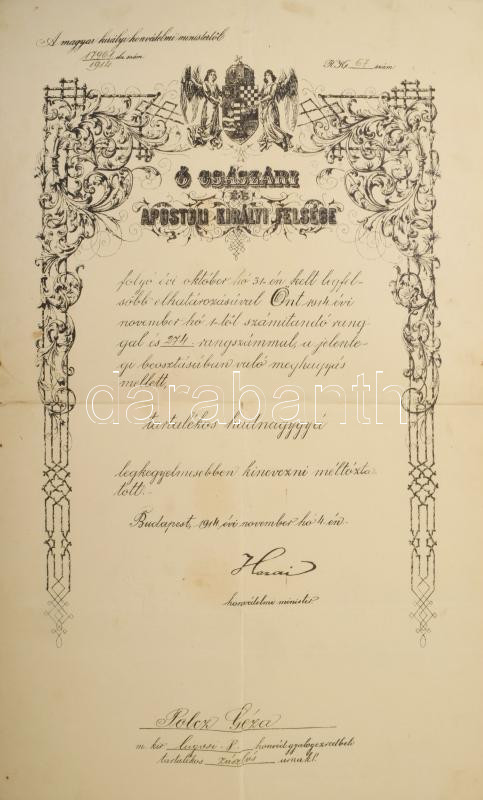 A magyar királyi honvédelmi ministertől
17967 eln. szám
1914
R. Kf. 67 szám
Ő CSÁSZÁRI
ÉS
APOSTOLI KIRÁLYI FELSÉGE
folyó évi október hó 31-én kelt legfel-
sőbb elhatározásával Önt 1914. évi
november hó 1-től számítandó rang-
gal és 274. rangszámmal, a jelenle-
gi beosztásában való meghagyás
mellett,
darabanth
tartalékos hadnagygyá
legkegyelmesebben kinevezni méltózta-
tott.
Budapest, 1914. évi november hó 4-én.
Hazai
honvédelmi minister.
Polcz Géza
m. kir. lugosi 8. honvéd gyalogezredbeli
tartalékos zászlós úrnak.